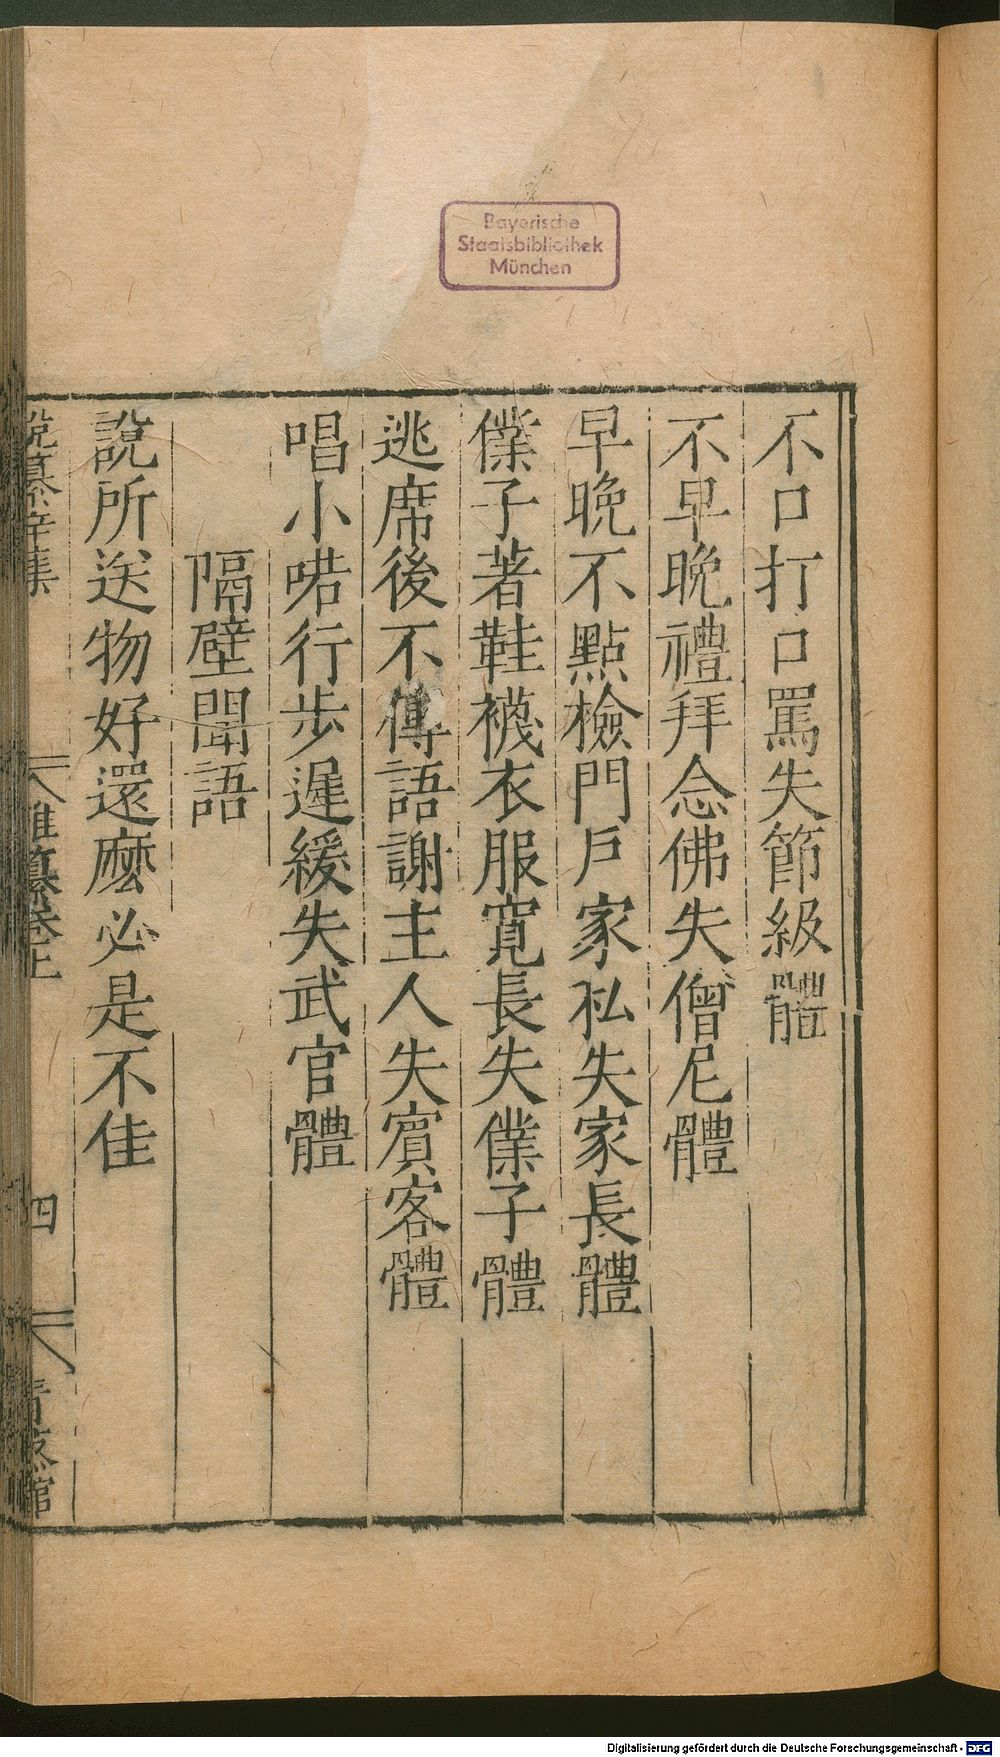 不口打口罵失節級體
不早晚禮拜念佛失僧尼體
早晚不點檢門戶家私失家長體
僕子著鞋襪衣服寛長失僕子體
逃席後不傳語謝主人失賓客體
唱小喏行步遲緩失武官體
隔壁聞語
說所送物好還麽必是不佳
說纂辛集
雜纂卷上
四
青藜館
Bayerische
Staatsbibliothek
München
Digitalisierung gefördert durch die Deutsche Forschungsgemeinschaft - DFG